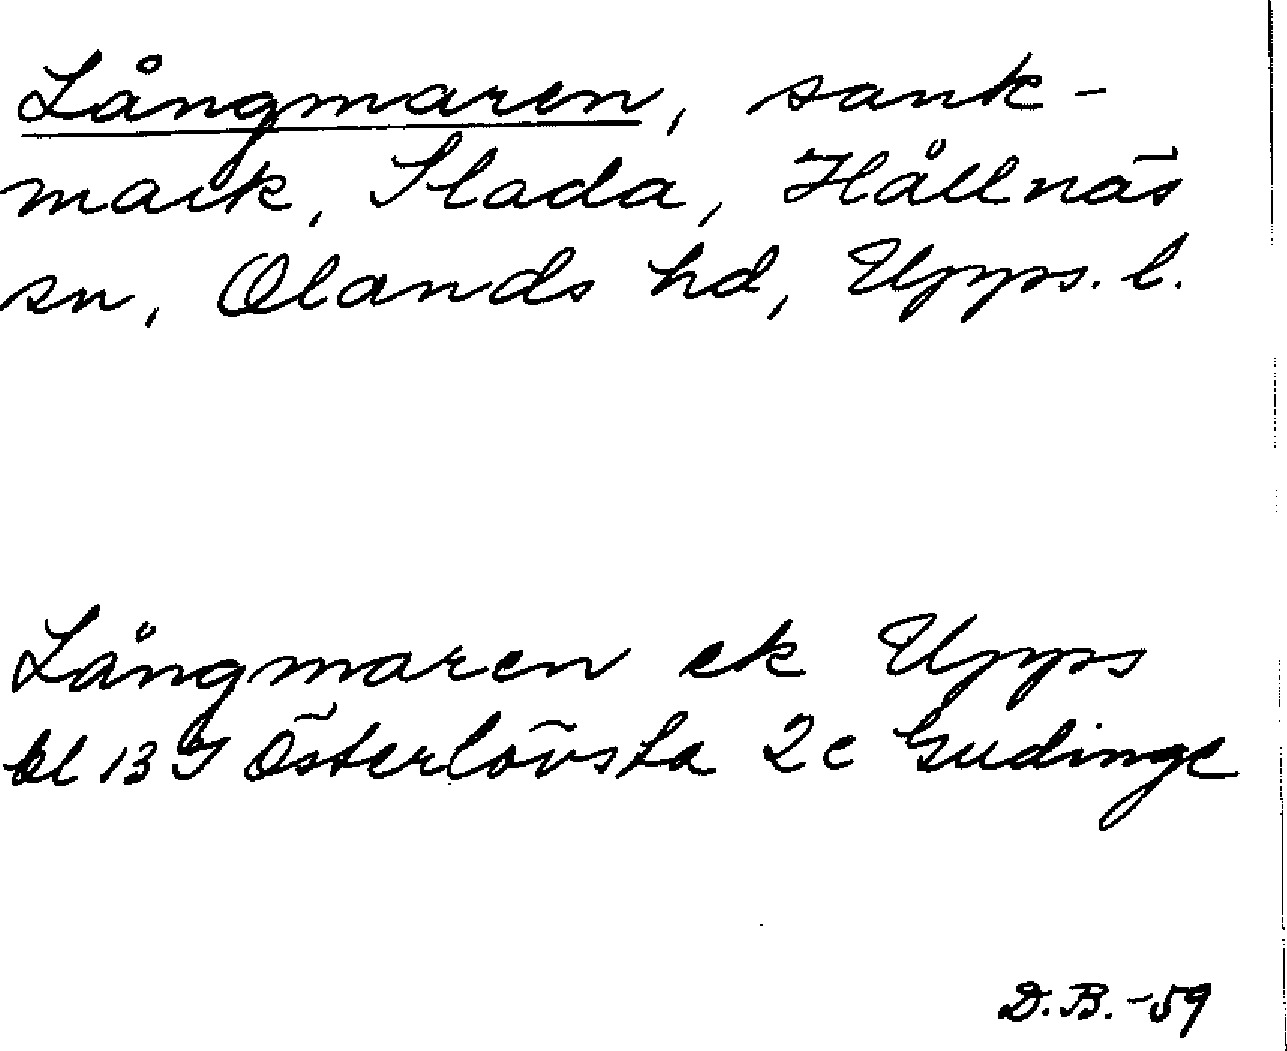 Långmaren, sank-
mark, Slada, Hållnäs
sn, Olands hd, Upps. l.
Långmaren ek Upps
bl 13 I Österlövsta 2c Gudinge
D.B. -59